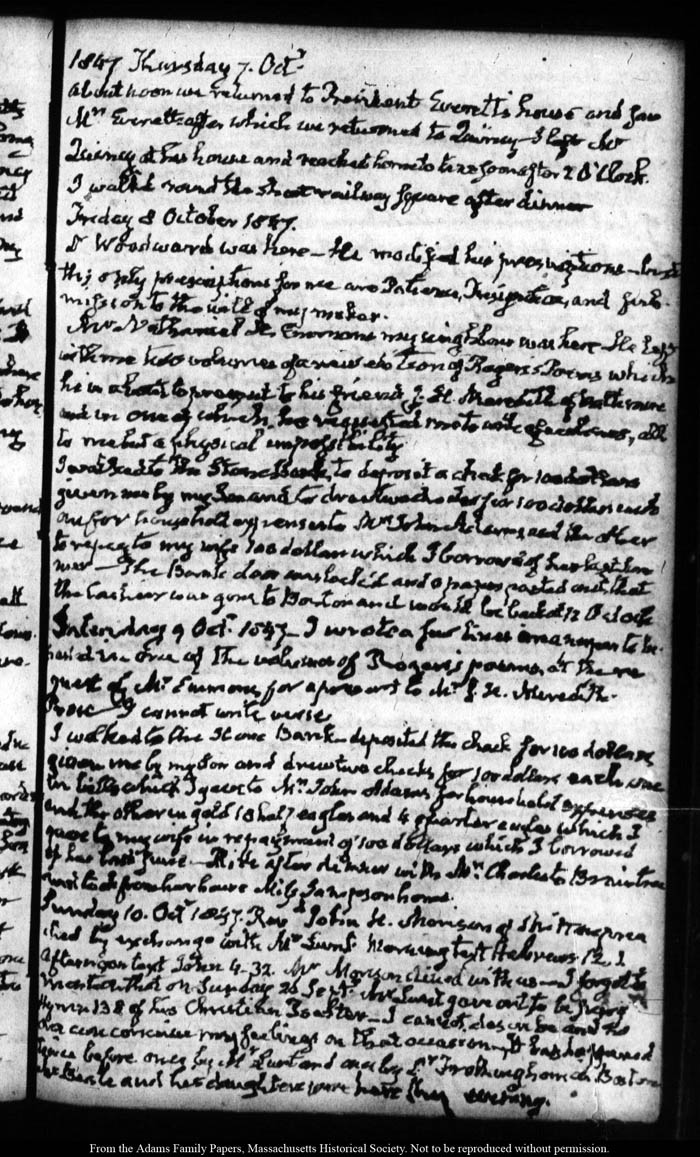 1847 Thursday 7. Octr
about noon we returned to President Everett's house and saw
Mrs Everett after which we returned to Quincy I left Mr
Quincy at his house and reached home to soon after 2 O'Clock.
I walk'd round the street railway square after dinner
Friday 8 October 1847.
Dr Woodward was here — He modified his prescriptions — but
his only prescriptions for me are Patience, Resignation, and sub-
mission to the will of my maker.
Mr Nathaniel H. Emmons my neighbour was here He left
with me two volumes of a new edition of Rogers's Poems which
he is about to present to his friend J. H. Meredith of Baltimore
and in one of which he requested me to write a few lines, all
to me but a physical impossibility
I walked to the Stone Bank, to deposit a check for 100 dollars
given me by my Son and to draw two checks for 100 dollars each
one for household expenses to Mrs John Adams and the other
to repay to my wife 100 dollars which I borrowed of her last
The Bank door was lock'd and a paper pasted on it that
the Cashier was gone to Boston and would be back at 12 O'Clock
Saturday 9 Oct. 1847— I wrote a few lines
in one of the volumes of Rogers's poems, at the re
quest of Mr Emmons for a present to Mr J. H. Meredith.
Prose I cannot write verse
I walked to the Stone Bank deposited the check for 100 dollars
given me by my Son and drew two checks for 100 dollars each one
in bills which I gave to Mrs John Adams for household expenses
and the other in gold 18 half eagles and 4 quarter eagles which I
gave to my wife in repayment of 100 dollars which I borrowed
of her last June — Ride after dinner with Mrs Charles to Braintree
and took from her house Miss Sampson home.
Sunday 10. Octr 1847. Revd John H. Morison of
ched by exchange with Mr Lunt. Morning text Hebrews 12. 1
Afternoon text John 4-32. Mr Morison dined with us — I forgot to
mention that on Sunday 26 Septr Mr Lunt gave out to be sung
Hymn 138 of his Christian Psalter — I cannot describe and no
one can conceive my feelings on that occasion — It has happened
twice before once by Mr Lunt and once by Dr Frothingham in Boston
and her daughter were here this evening.
From the Adams Family Papers, Massachusetts Historical Society. Not to be reproduced without permission.